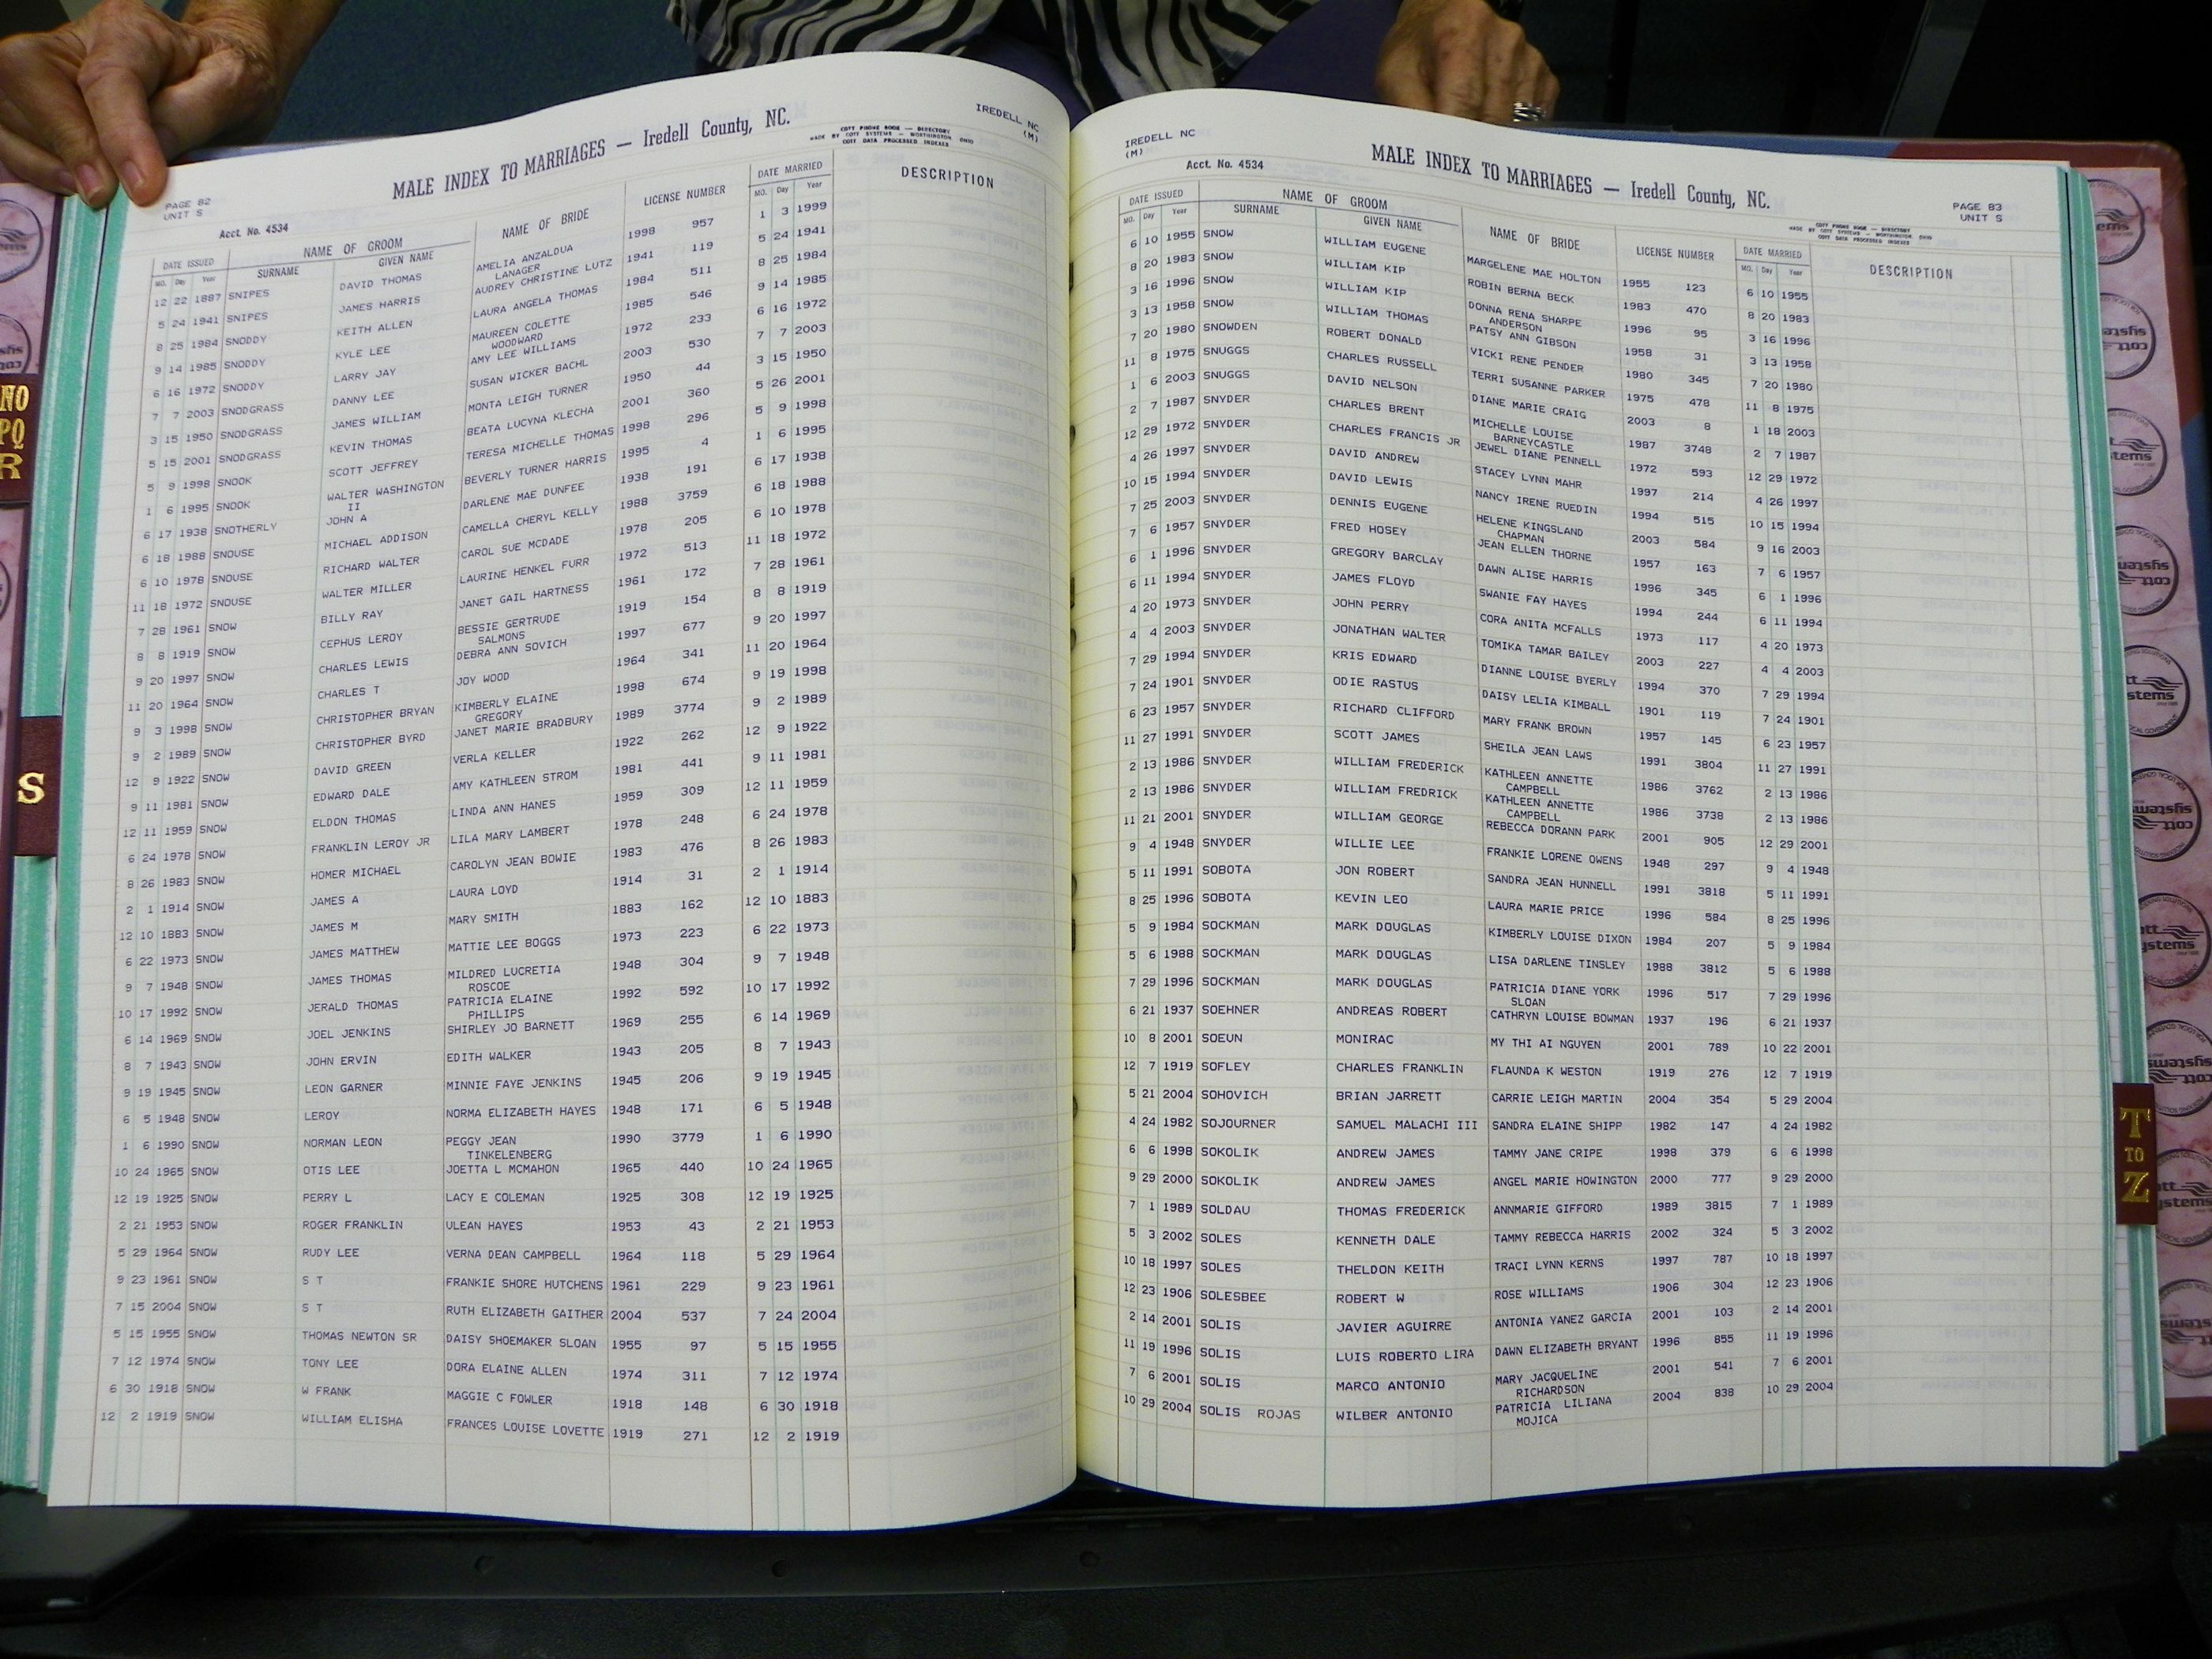 IREDELL NC
(M)
MALE INDEX TO MARRIAGES — Iredell County, NC.
COTT PHONE BOOK — DIRECTORY
MADE BY COTT SYSTEMS — WORTHINGTON OHIO
COTT DATA PROCESSED INDEXES
PAGE 82
UNIT S
Acct. No. 4534
DATE ISSUED NAME OF GROOM NAME OF BRIDE LICENSE NUMBER DATE MARRIED DESCRIPTION
MO. Day Year SURNAME GIVEN NAME MO. Day Year
12 22 1887 SNIPES DAVID THOMAS AMELIA ANZALDUA 1998 957 1 3 1999
LANAGER
5 24 1941 SNIPES JAMES HARRIS AUDREY CHRISTINE LUTZ 1941 119 5 24 1941
8 25 1984 SNODDY KEITH ALLEN LAURA ANGELA THOMAS 1984 511 8 25 1984
9 14 1985 SNODDY KYLE LEE MAUREEN COLETTE 1985 546 9 14 1985
WOODWARD
6 16 1972 SNODDY LARRY JAY AMY LEE WILLIAMS 1972 233 6 16 1972
7 7 2003 SNODGRASS DANNY LEE SUSAN WICKER BACHL 2003 530 7 7 2003
3 15 1950 SNODGRASS JAMES WILLIAM MONTA LEIGH TURNER 1950 44 3 15 1950
5 15 2001 SNODGRASS KEVIN THOMAS BEATA LUCYNA KLECHA 2001 360 5 26 2001
5 9 1998 SNOOK SCOTT JEFFREY TERESA MICHELLE THOMAS 1998 296 5 9 1998
1 6 1995 SNOOK WALTER WASHINGTON BEVERLY TURNER HARRIS 1995 4 1 6 1995
II
6 17 1938 SNOTHERLY JOHN A DARLENE MAE DUNFEE 1938 191 6 17 1938
6 18 1988 SNOUSE MICHAEL ADDISON CAMELLA CHERYL KELLY 1988 3759 6 18 1988
6 10 1978 SNOUSE RICHARD WALTER CAROL SUE MCDADE 1978 205 6 10 1978
11 18 1972 SNOUSE WALTER MILLER LAURINE HENKEL FURR 1972 513 11 18 1972
7 28 1961 SNOW BILLY RAY JANET GAIL HARTNESS 1961 172 7 28 1961
8 8 1919 SNOW CEPHUS LEROY BESSIE GERTRUDE 1919 154 8 8 1919
SALMONS
9 20 1997 SNOW CHARLES LEWIS DEBRA ANN SOVICH 1997 677 9 20 1997
11 20 1964 SNOW CHARLES T JOY WOOD 1964 341 11 20 1964
9 3 1998 SNOW CHRISTOPHER BRYAN KIMBERLY ELAINE 1998 674 9 19 1998
GREGORY
9 2 1989 SNOW CHRISTOPHER BYRD JANET MARIE BRADBURY 1989 3774 9 2 1989
12 9 1922 SNOW DAVID GREEN VERLA KELLER 1922 262 12 9 1922
9 11 1981 SNOW EDWARD DALE AMY KATHLEEN STROM 1981 441 9 11 1981
12 11 1959 SNOW ELDON THOMAS LINDA ANN HANES 1959 309 12 11 1959
6 24 1978 SNOW FRANKLIN LEROY JR LILA MARY LAMBERT 1978 248 6 24 1978
8 26 1983 SNOW HOMER MICHAEL CAROLYN JEAN BOWIE 1983 476 8 26 1983
2 1 1914 SNOW JAMES A LAURA LOYD 1914 31 2 1 1914
12 10 1883 SNOW JAMES M MARY SMITH 1883 162 12 10 1883
6 22 1973 SNOW JAMES MATTHEW MATTIE LEE BOGGS 1973 223 6 22 1973
9 7 1948 SNOW JAMES THOMAS MILDRED LUCRETIA 1948 304 9 7 1948
ROSCOE
10 17 1992 SNOW JERALD THOMAS PATRICIA ELAINE 1992 592 10 17 1992
PHILLIPS
6 14 1969 SNOW JOEL JENKINS SHIRLEY JO BARNETT 1969 255 6 14 1969
8 7 1943 SNOW JOHN ERVIN EDITH WALKER 1943 205 8 7 1943
9 19 1945 SNOW LEON GARNER MINNIE FAYE JENKINS 1945 206 9 19 1945
6 5 1948 SNOW LEROY NORMA ELIZABETH HAYES 1948 171 6 5 1948
1 6 1990 SNOW NORMAN LEON PEGGY JEAN 1990 3779 1 6 1990
TINKELENBERG
10 24 1965 SNOW OTIS LEE JOETTA L MCMAHON 1965 440 10 24 1965
12 19 1925 SNOW PERRY L LACY E COLEMAN 1925 308 12 19 1925
2 21 1953 SNOW ROGER FRANKLIN ULEAN HAYES 1953 43 2 21 1953
5 29 1964 SNOW RUDY LEE VERNA DEAN CAMPBELL 1964 118 5 29 1964
9 23 1961 SNOW S T FRANKIE SHORE HUTCHENS 1961 229 9 23 1961
7 15 2004 SNOW S T RUTH ELIZABETH GAITHER 2004 537 7 24 2004
5 15 1955 SNOW THOMAS NEWTON SR DAISY SHOEMAKER SLOAN 1955 97 5 15 1955
7 12 1974 SNOW TONY LEE DORA ELAINE ALLEN 1974 311 7 12 1974
6 30 1918 SNOW W FRANK MAGGIE C FOWLER 1918 148 6 30 1918
12 2 1919 SNOW WILLIAM ELISHA FRANCES LOUISE LOVETTE 1919 271 12 2 1919
IREDELL NC
(M)
Acct. No. 4534
MALE INDEX TO MARRIAGES — Iredell County, NC.
COTT PHONE BOOK — DIRECTORY
MADE BY COTT SYSTEMS — WORTHINGTON OHIO
COTT DATA PROCESSED INDEXES
PAGE 83
UNIT S
DATE ISSUED NAME OF GROOM NAME OF BRIDE LICENSE NUMBER DATE MARRIED DESCRIPTION
MO. Day Year SURNAME GIVEN NAME MO. Day Year
6 10 1955 SNOW WILLIAM EUGENE MARGELENE MAE HOLTON 1955 123 6 10 1955
8 20 1983 SNOW WILLIAM KIP ROBIN BERNA BECK 1983 470 8 20 1983
3 16 1996 SNOW WILLIAM KIP DONNA RENA SHARPE 1996 95 3 16 1996
ANDERSON
3 13 1958 SNOW WILLIAM THOMAS PATSY ANN GIBSON 1958 31 3 13 1958
7 20 1980 SNOWDEN ROBERT DONALD VICKI RENE PENDER 1980 345 7 20 1980
11 8 1975 SNUGGS CHARLES RUSSELL TERRI SUSANNE PARKER 1975 478 11 8 1975
1 6 2003 SNUGGS DAVID NELSON DIANE MARIE CRAIG 2003 8 1 18 2003
2 7 1987 SNYDER CHARLES BRENT MICHELLE LOUISE 1987 3748 2 7 1987
BARNEYCASTLE
12 29 1972 SNYDER CHARLES FRANCIS JR JEWEL DIANE PENNELL 1972 593 12 29 1972
4 26 1997 SNYDER DAVID ANDREW STACEY LYNN MAHR 1997 214 4 26 1997
10 15 1994 SNYDER DAVID LEWIS NANCY IRENE RUEDIN 1994 515 10 15 1994
7 25 2003 SNYDER DENNIS EUGENE HELENE KINGSLAND 2003 584 9 16 2003
CHAPMAN
7 6 1957 SNYDER FRED HOSEY JEAN ELLEN THORNE 1957 163 7 6 1957
6 1 1996 SNYDER GREGORY BARCLAY DAWN ALISE HARRIS 1996 345 6 1 1996
6 11 1994 SNYDER JAMES FLOYD SWANIE FAY HAYES 1994 244 6 11 1994
4 20 1973 SNYDER JOHN PERRY CORA ANITA MCFALLS 1973 117 4 20 1973
4 4 2003 SNYDER JONATHAN WALTER TOMIKA TAMAR BAILEY 2003 227 4 4 2003
7 29 1994 SNYDER KRIS EDWARD DIANNE LOUISE BYERLY 1994 370 7 29 1994
7 24 1901 SNYDER ODIE RASTUS DAISY LELIA KIMBALL 1901 119 7 24 1901
6 23 1957 SNYDER RICHARD CLIFFORD MARY FRANK BROWN 1957 145 6 23 1957
11 27 1991 SNYDER SCOTT JAMES SHEILA JEAN LAWS 1991 3804 11 27 1991
2 13 1986 SNYDER WILLIAM FREDERICK KATHLEEN ANNETTE 1986 3762 2 13 1986
CAMPBELL
2 13 1986 SNYDER WILLIAM FREDRICK KATHLEEN ANNETTE 1986 3738 2 13 1986
CAMPBELL
11 21 2001 SNYDER WILLIAM GEORGE REBECCA DORANN PARK 2001 905 12 29 2001
9 4 1948 SNYDER WILLIE LEE FRANKIE LORENE OWENS 1948 297 9 4 1948
5 11 1991 SOBOTA JON ROBERT SANDRA JEAN HUNNELL 1991 3818 5 11 1991
8 25 1996 SOBOTA KEVIN LEO LAURA MARIE PRICE 1996 584 8 25 1996
5 9 1984 SOCKMAN MARK DOUGLAS KIMBERLY LOUISE DIXON 1984 207 5 9 1984
5 6 1988 SOCKMAN MARK DOUGLAS LISA DARLENE TINSLEY 1988 3812 5 6 1988
7 29 1996 SOCKMAN MARK DOUGLAS PATRICIA DIANE YORK 1996 517 7 29 1996
SLOAN
6 21 1937 SOEHNER ANDREAS ROBERT CATHRYN LOUISE BOWMAN 1937 196 6 21 1937
10 8 2001 SOEUN MONIRAC MY THI AI NGUYEN 2001 789 10 22 2001
12 7 1919 SOFLEY CHARLES FRANKLIN FLAUNDA K WESTON 1919 276 12 7 1919
5 21 2004 SOHOVICH BRIAN JARRETT CARRIE LEIGH MARTIN 2004 354 5 29 2004
4 24 1982 SOJOURNER SAMUEL MALACHI III SANDRA ELAINE SHIPP 1982 147 4 24 1982
6 6 1998 SOKOLIK ANDREW JAMES TAMMY JANE CRIPE 1998 379 6 6 1998
9 29 2000 SOKOLIK ANDREW JAMES ANGEL MARIE HOWINGTON 2000 777 9 29 2000
7 1 1989 SOLDAU THOMAS FREDERICK ANNMARIE GIFFORD 1989 3815 7 1 1989
5 3 2002 SOLES KENNETH DALE TAMMY REBECCA HARRIS 2002 324 5 3 2002
10 18 1997 SOLES THELDON KEITH TRACI LYNN KERNS 1997 787 10 18 1997
12 23 1906 SOLESBEE ROBERT W ROSE WILLIAMS 1906 304 12 23 1906
2 14 2001 SOLIS JAVIER AGUIRRE ANTONIA YANEZ GARCIA 2001 103 2 14 2001
11 19 1996 SOLIS LUIS ROBERTO LIRA DAWN ELIZABETH BRYANT 1996 855 11 19 1996
7 6 2001 SOLIS MARCO ANTONIO MARY JACQUELINE 2001 541 7 6 2001
RICHARDSON
10 29 2004 SOLIS ROJAS WILBER ANTONIO PATRICIA LILIANA 2004 838 10 29 2004
MOJICA
NO
PQ
R
S
T
TO
Z